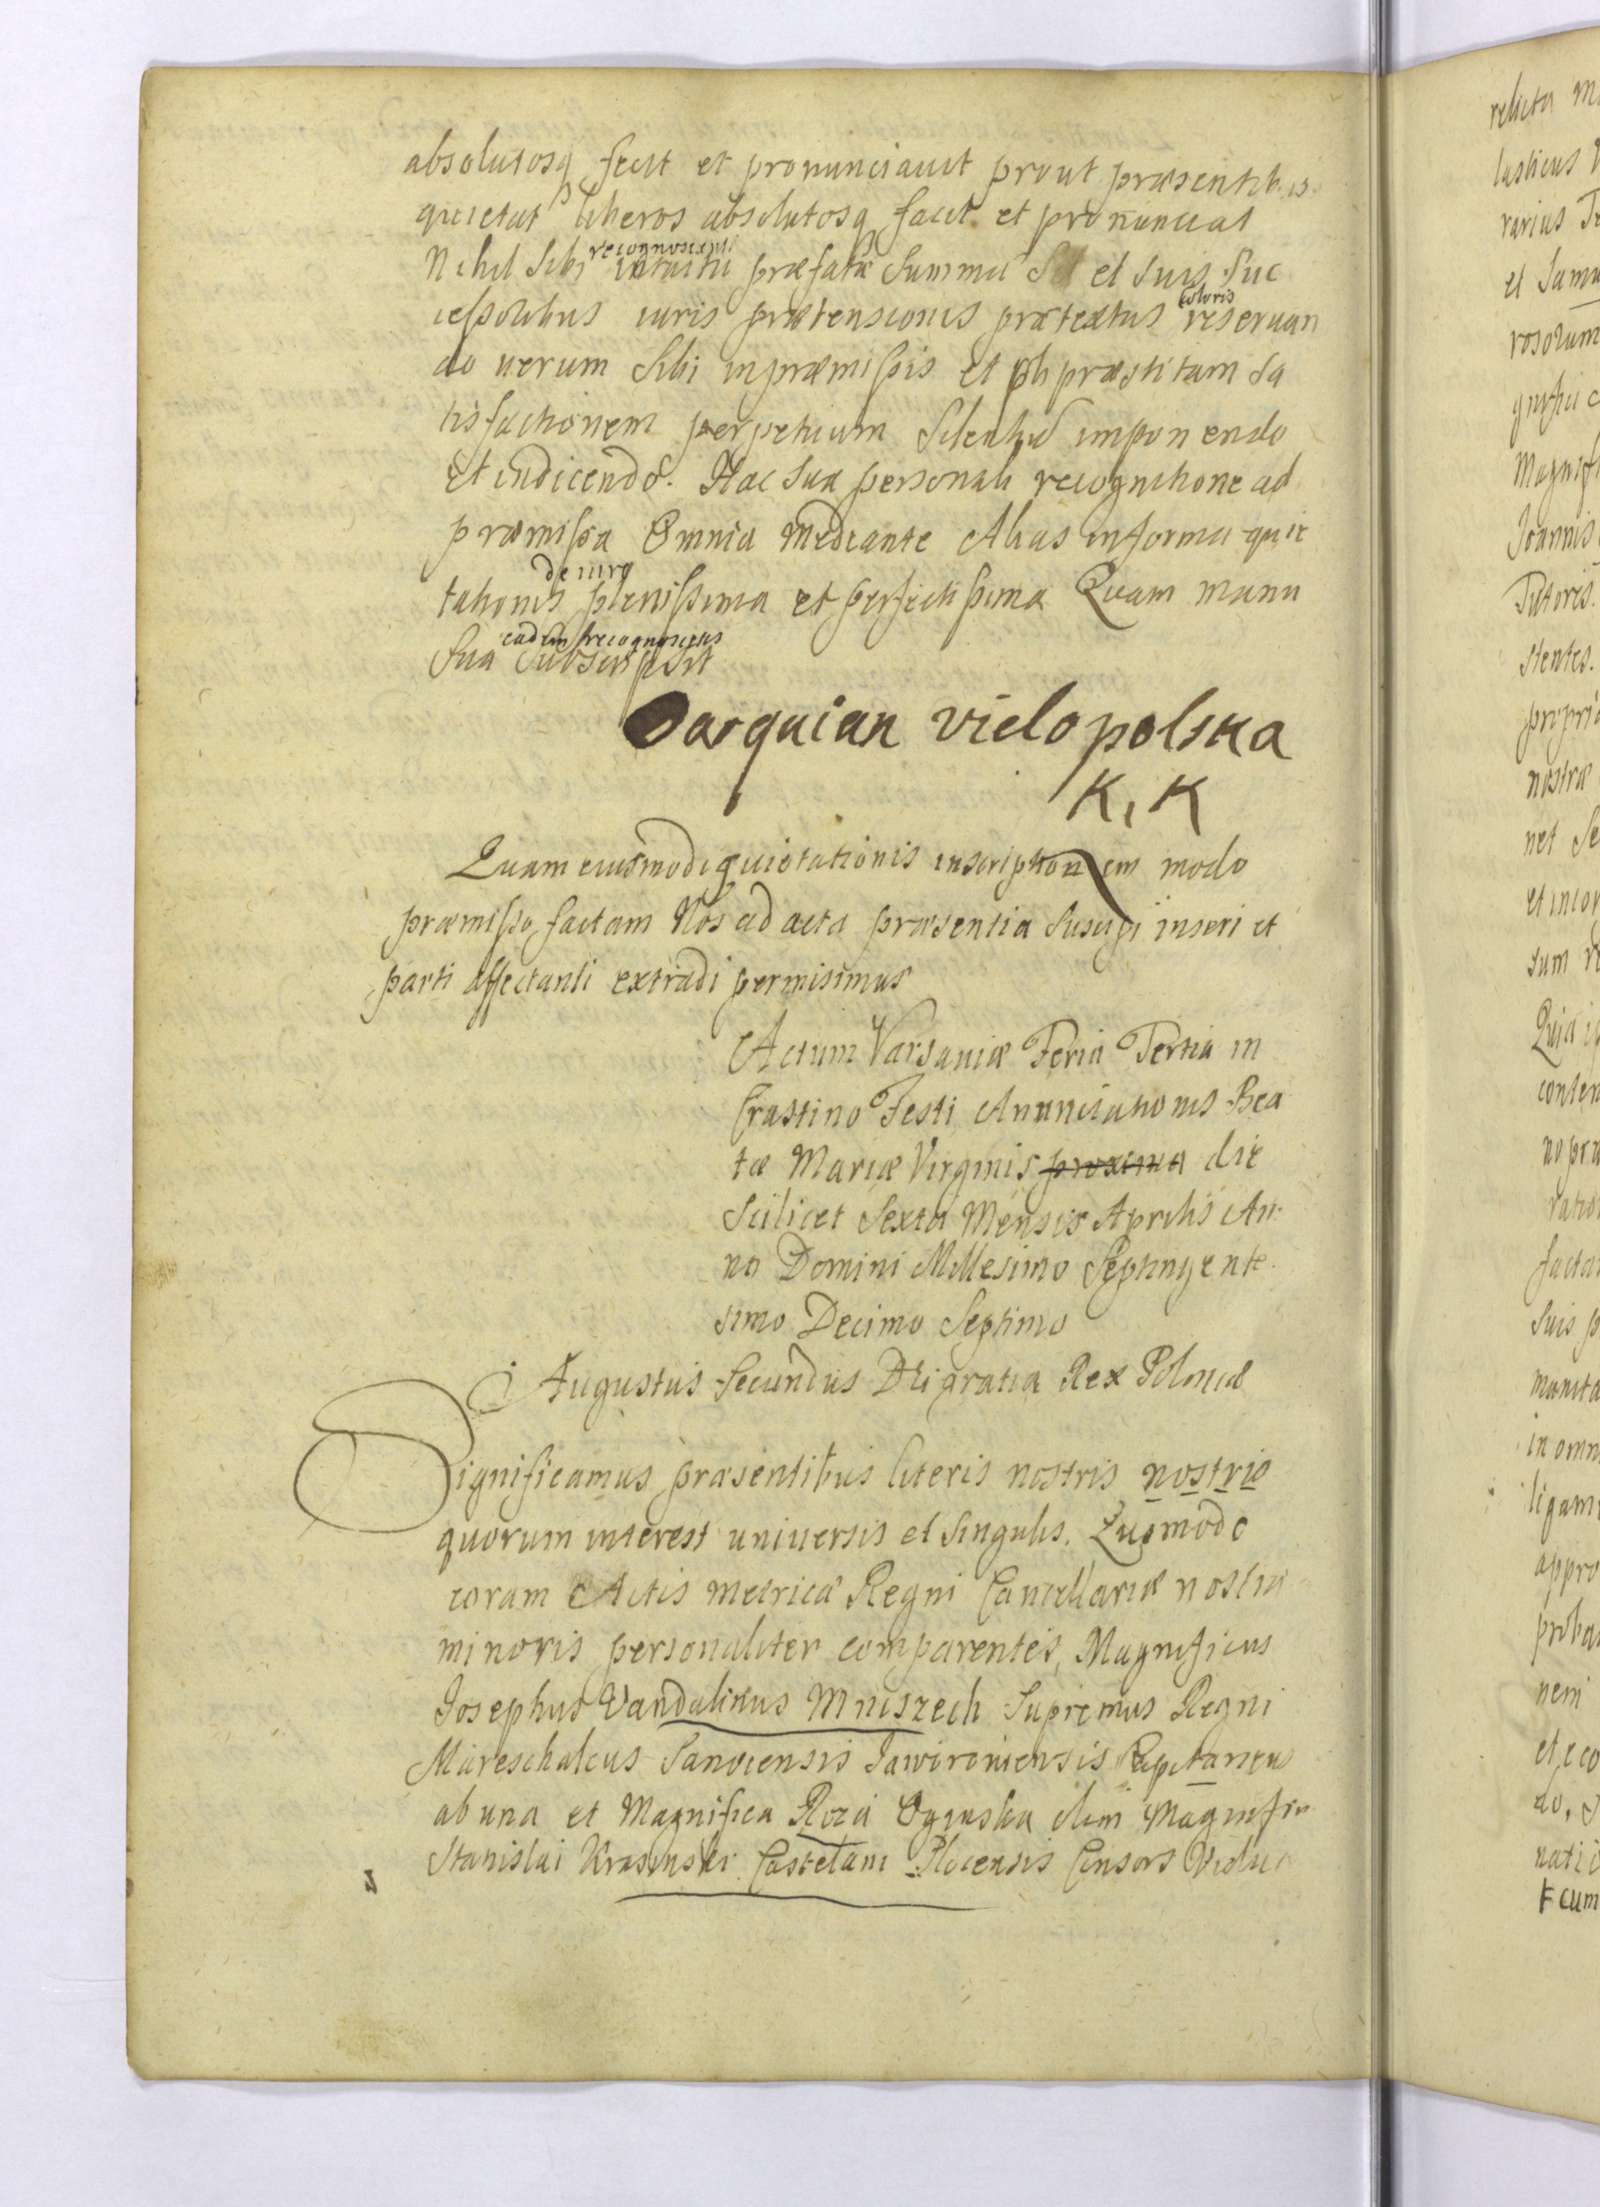 absolutosq fecit et pronunciavit prout præsentibus
quietat liberos absolutosq facit et pronunciat
recognoscens
Nihil Sibi intuitu præfatæ Summæ et suis Suc
coloris
cessoribus iuris prætensionis prætextus reservan
do verum Sibi in præmissis et præstitam Sa
tisfactionem perpetuum Silentium imponendo
et indicendo. Hac Sua personali recognitione ad
præmissa Omnia Mediante Alias in forma quie
de iure
tationis plenissima et perfectissima Quam manu
eadem recognoscens
Sua Subscripsit
Darquian vielopolska
K, K
Quam eiusmodi quietationis inscriptionem modo
præmisso factam Nos ad acta præsentia Suscipi inseri et
parti affectanti extradi permisimus
Actum Varsaviæ Feria Tertia in
Crastino Festi Anunciationis Bea
tæ Mariæ Virginis proxima die
Scilicet Sexta Mensis Aprilis An
no Domini Millesimo Septingente
simo Decimo Septimo
Augustus Secundus Dei gratia Rex Poloniæ
Significamus præsentibus literis nostris nostris
quorum interest universis et Singulis. Quomodo
coram Actis Metricæ Regni Cancellariæ nostræ
minoris personaliter comparentes, Magnificus
Josephus Vandalinus Mniszech Supremus Regni
Mareschalcus Sanocensis Javoroviensis Capitaneus
ab una et Magnifica Roza Oginska olim Magnifici
Stanislai Krasinski Castelani Plocensis Consors Vidua
relicta
lasticus
rarius
et
rosorum
Joannis
Tutoris.
stentes.
nostræ
sum
Quia
in omn
et eco
F cum